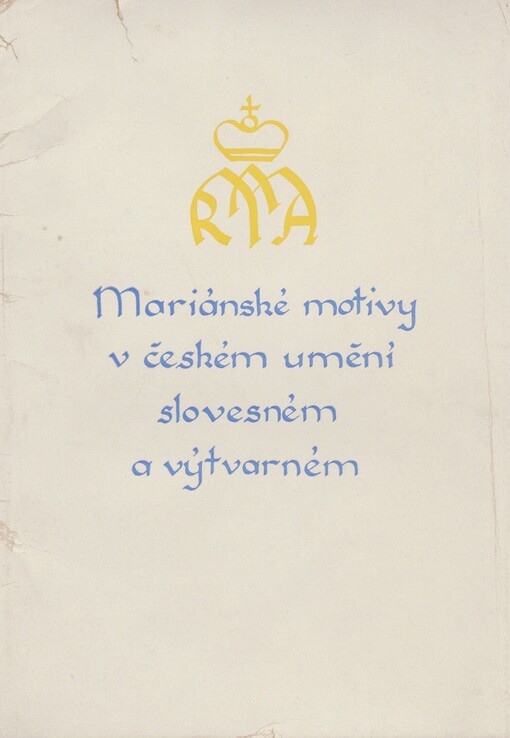 RMA
Mariánské motivy
v českém umění
slovesném
a výtvarném